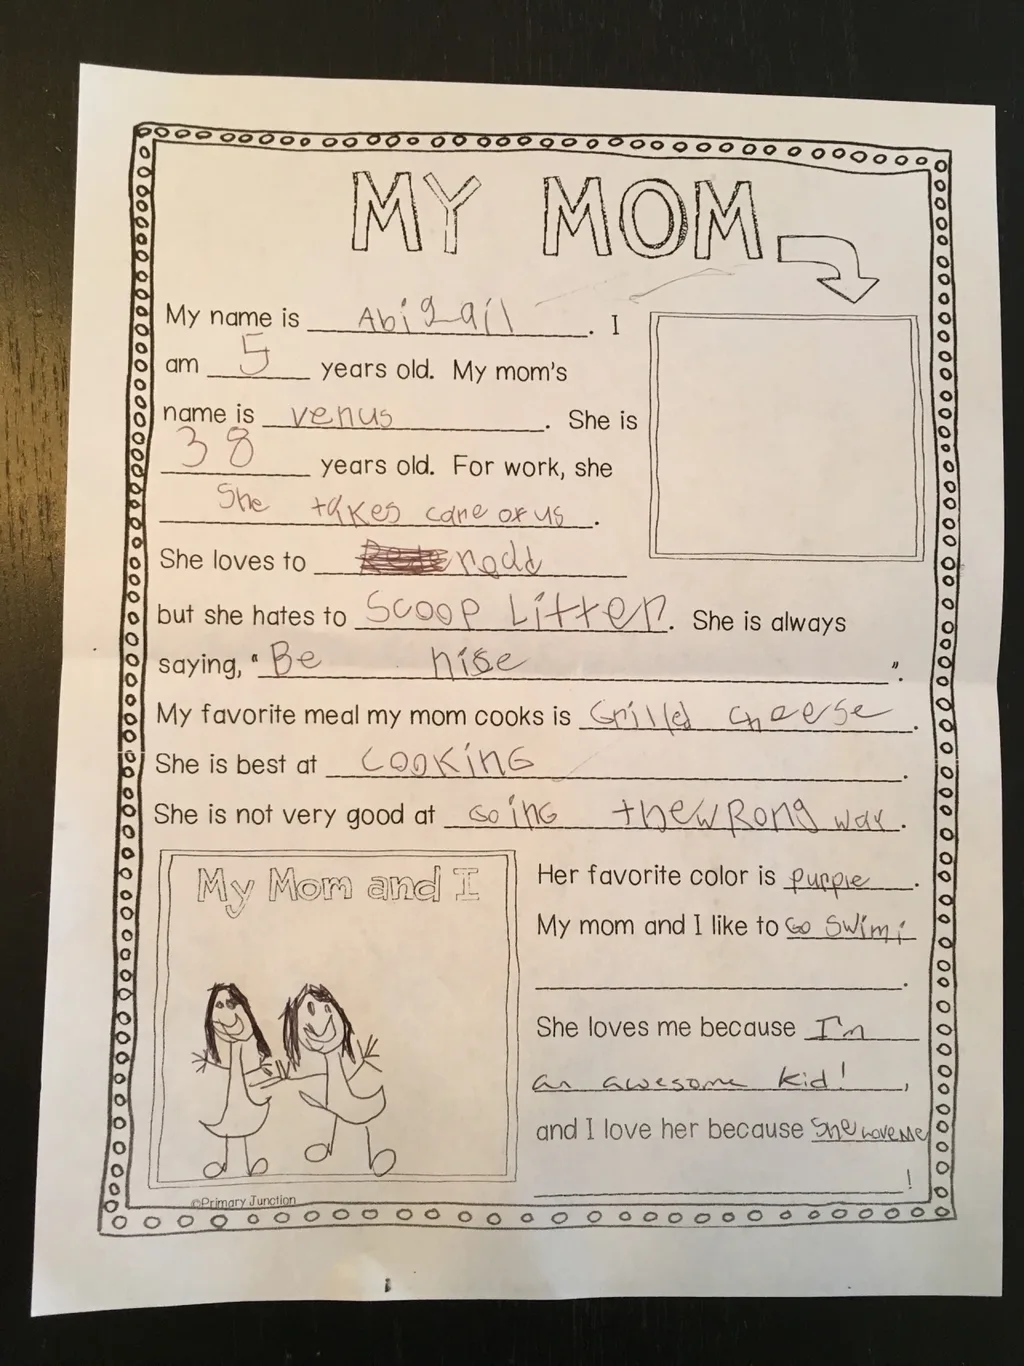 MY MOM
My name is Abigail. I
am 5 years old. My mom's
name is venus. She is
38 years old. For work, she
She takes care of us.
She loves to radd
but she hates to Scoop Litter. She is always
saying, "Be nise".
My favorite meal my mom cooks is Grilled cheese.
She is best at cooking.
She is not very good at Going the wRong way.
My Mom and I
Her favorite color is purple.
My mom and I like to Go Swimi
.
She loves me because I'm
an awesome kid!,
and I love her because She loves Me
!
©Primary Junction